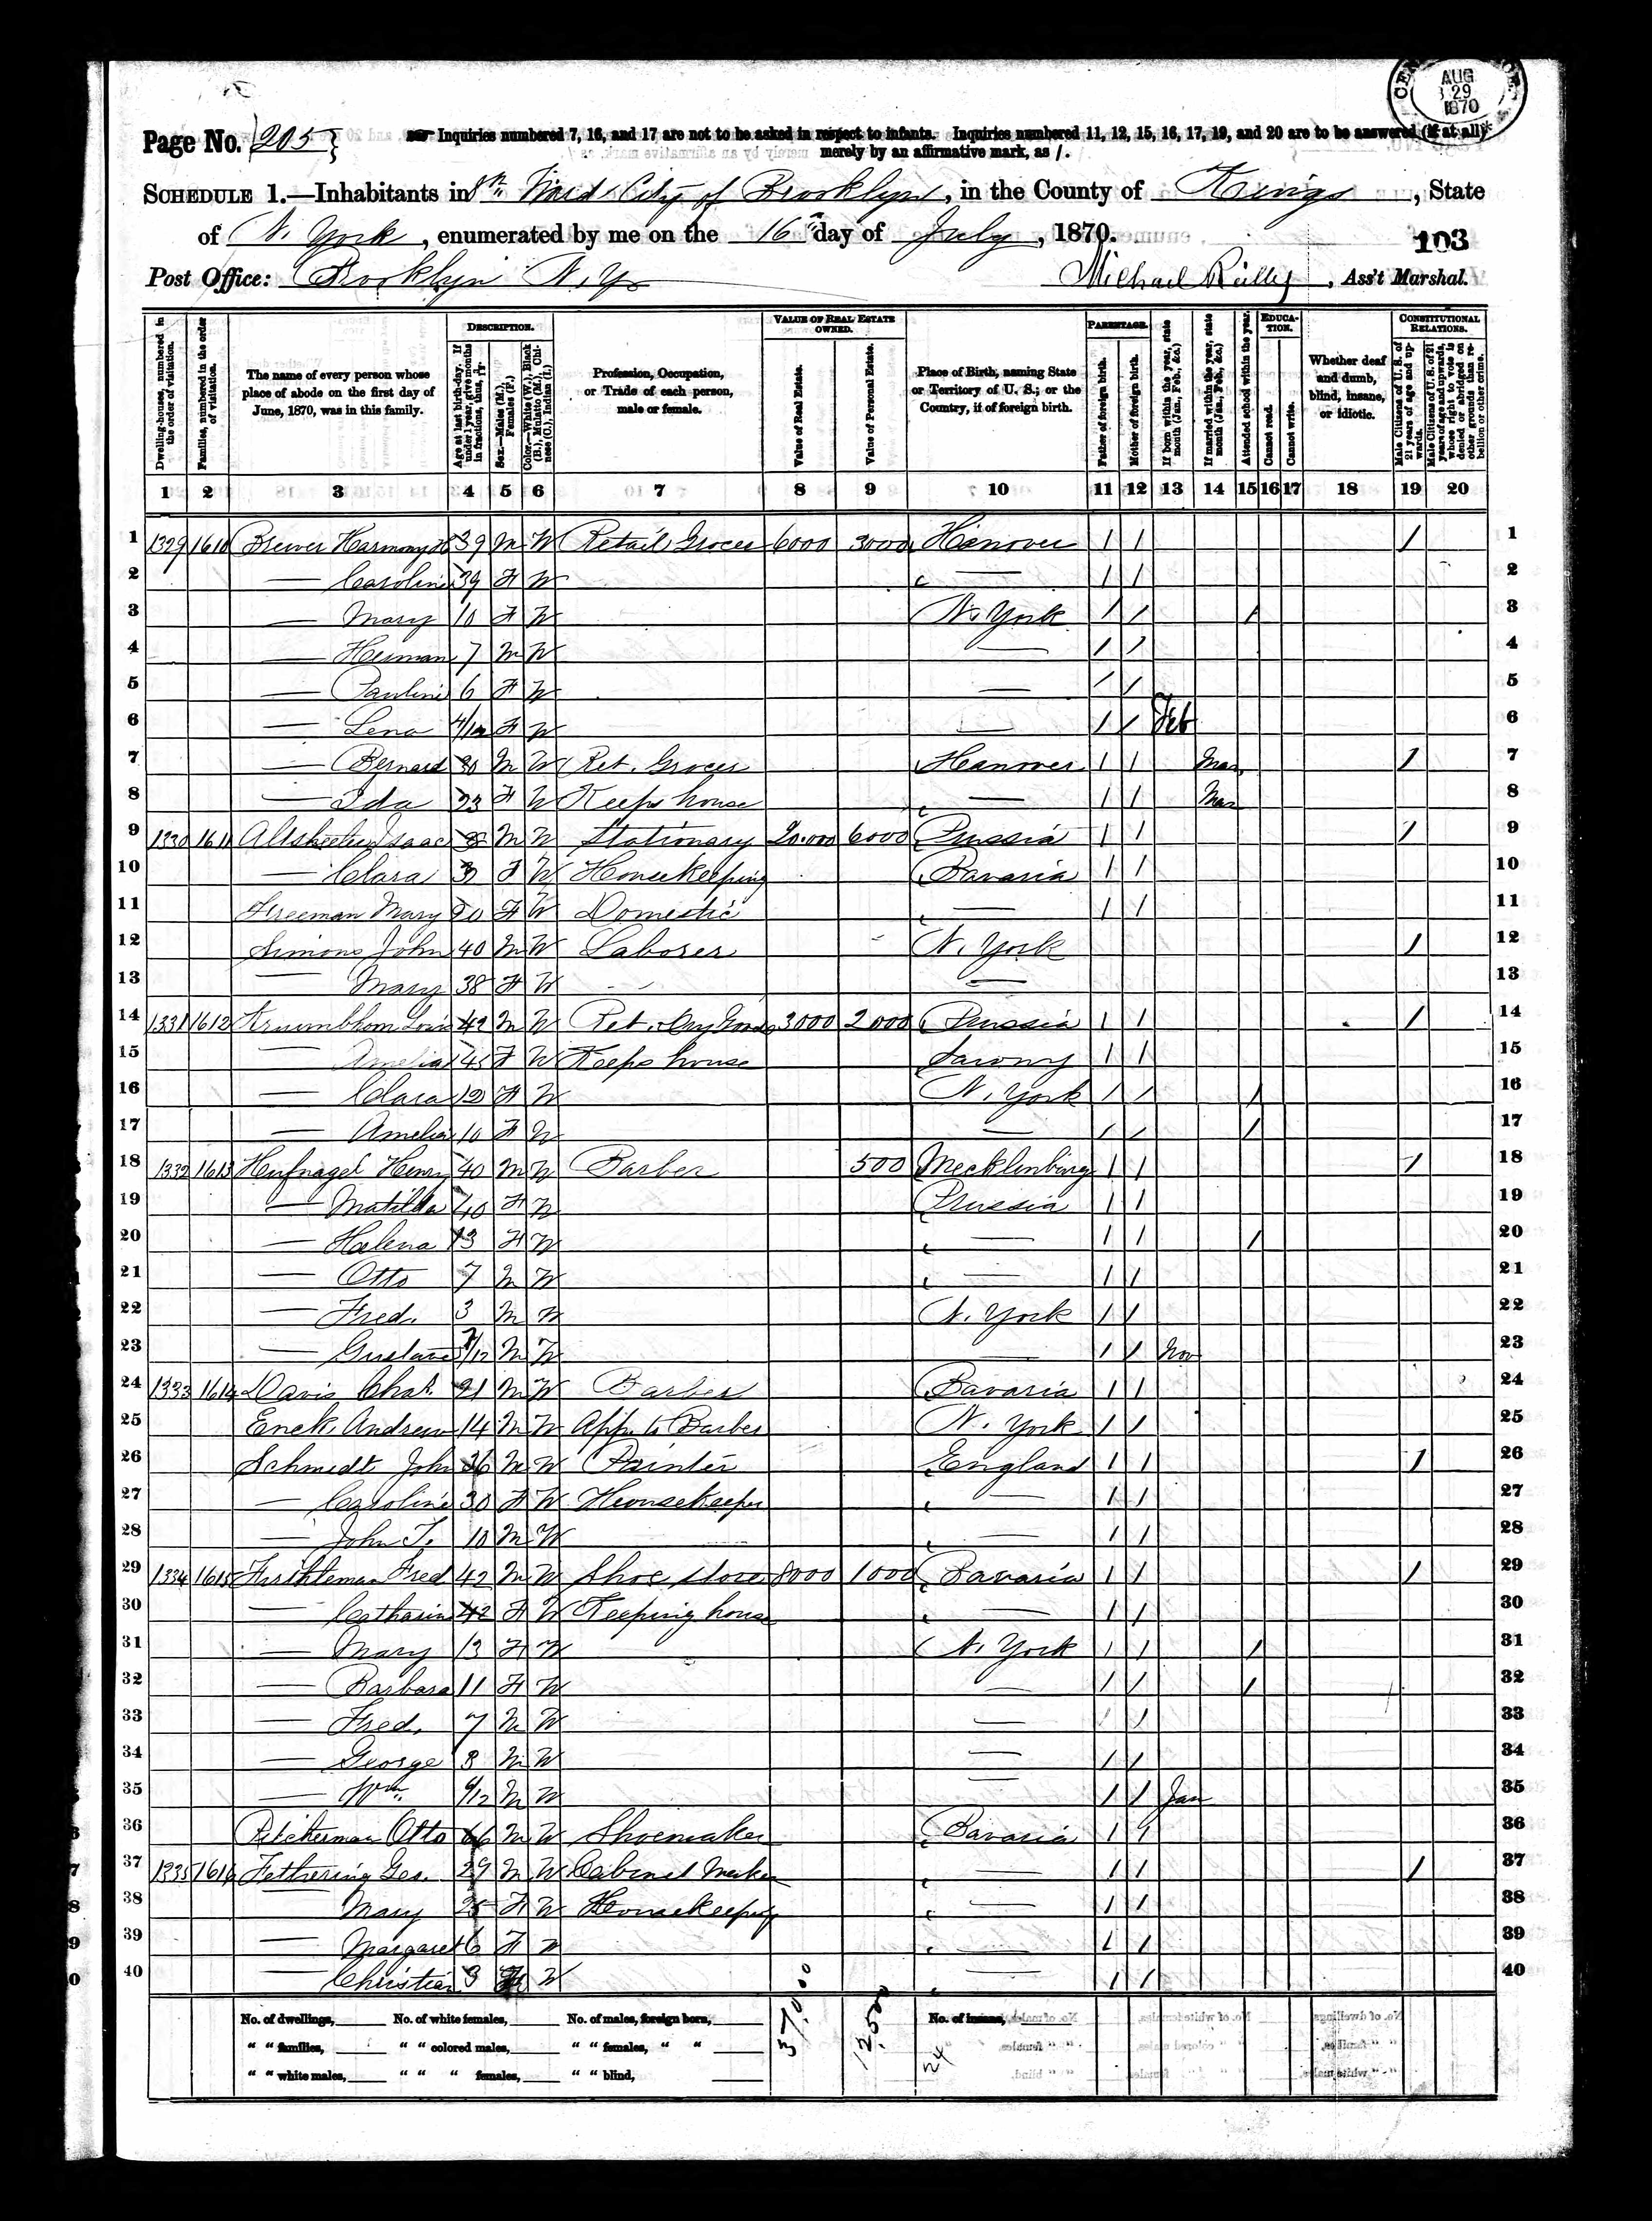 CEN AUG 29 1870
Page No. 205
Inquiries numbered 7, 16, and 17 are not to be asked in respect to infants. Inquiries numbered 11, 12, 15, 16, 17, 19, and 20 are to be answered (if at all)
merely by an affirmative mark, as /.
SCHEDULE 1.—Inhabitants in 8th Ward City of Brooklyn, in the County of Kings, State
of N. York, enumerated by me on the 16th day of July, 1870.
103
Post Office: Brooklyn N.Y. Michael Reilly, Ass't Marshal.
Dwelling-houses, numbered in the order of visitation.
Families, numbered in the order of visitation.
The name of every person whose place of abode on the first day of June, 1870, was in this family.
DESCRIPTION.
Age at last birth-day. If under 1 year, give months in fractions, thus, 3/12.
Sex.—Males (M.), Females (F.)
Color.—White (W.), Black (B.), Mulatto (M.), Chinese (C.), Indian (I.)
Profession, Occupation, or Trade of each person, male or female.
VALUE OF REAL ESTATE OWNED.
Value of Real Estate.
Value of Personal Estate.
Place of Birth, naming State or Territory of U. S.; or the Country, if of foreign birth.
PARENTAGE.
Father of foreign birth.
Mother of foreign birth.
If born within the year, state month (Jan., Feb., &c.)
If married within the year, state month (Jan., Feb., &c.)
Attended school within the year.
EDUCATION.
Cannot read.
Cannot write.
Whether deaf and dumb, blind, insane, or idiotic.
CONSTITUTIONAL RELATIONS.
Male Citizens of U. S. of 21 years of age and upwards.
Male Citizens of U. S. of 21 years of age and upwards, whose right to vote is denied or abridged on other grounds than rebellion or other crime.
1 2 3 4 5 6 7 8 9 10 11 12 13 14 15 16 17 18 19 20
1 1329 1610 Brewer Harmony H 39 M W Retail Grocer 6000 3000 Hanover / / / 1
2 — Caroline 39 F W — / / 2
3 — Mary 10 F W N. York / / / 3
4 — Herman 7 M W — / / 4
5 — Pauline 6 F W — / / 5
6 — Lena 4/12 F W — / / Feb 6
7 — Bernard 30 M W Ret. Grocer Hanover / / Mar / 7
8 — Ida 23 F W Keeps house — / / Mar 8
9 1330 1611 Isaac M W Stationary 20.000 6000 Prussia / / / 9
10 — Clara F W Housekeeping Bavaria / / 10
11 Freeman Mary 20 F W Domestic — / / 11
12 Simons John 40 M W Laborer N. York / 12
13 — Mary 38 F W — 13
14 1331 1612 Louis 42 M W Ret. Dry Goods 3000 2000 Prussia / / / 14
15 — Amelia 45 F W Keeps house Saxony / / 15
16 — Clara 12 F W N. York / / / 16
17 — Amelia 10 F W — / / / 17
18 1332 1613 Hufnagel Henry 40 M W Barber 500 Mecklinburg / / / 18
19 — Matilda 40 F W Prussia / / 19
20 — Helena 13 F W — / / / 20
21 — Otto 7 M W — / / 21
22 — Fred. 3 M W N. York / / 22
23 — Gustave 7/12 M W — / / Nov 23
24 1333 1614 Davis Chas. 21 M W Barber Bavaria / / 24
25 Enck, Andrew 14 M W App. to Barber N. York / / 25
26 Schmedt John 36 M W Painter England / / / 26
27 — Caroline 30 F W Housekeeper — / / 27
28 — John T. 10 M W — / / 28
29 1334 1615 Fred 42 M W Shoe store 8000 1000 Bavaria / / / 29
30 — Catharine 42 F W Keeping house — / / 30
31 — Mary 13 F W N. York / / / 31
32 — Barbara 11 F W — / / / 32
33 — Fred. 7 M W — / / 33
34 — George 3 M W — / / 34
35 — Wm. 6/12 M W — / / Jan 35
36 Otto 66 M W Shoemaker Bavaria / / 36
37 1335 1616 Fethering Geo. 29 M W Cabinet Maker — / / / 37
38 — Mary 25 F W Housekeeping — / / 38
39 — Margaret 6 F W — / / 39
40 — Christian 3 W — / / 40
No. of dwellings, No. of white females, No. of males, foreign born, 37,000 12,500 No. of insane,
" " families, " " colored males, " " females, " " 24
" " white males, " " " females, " " blind,